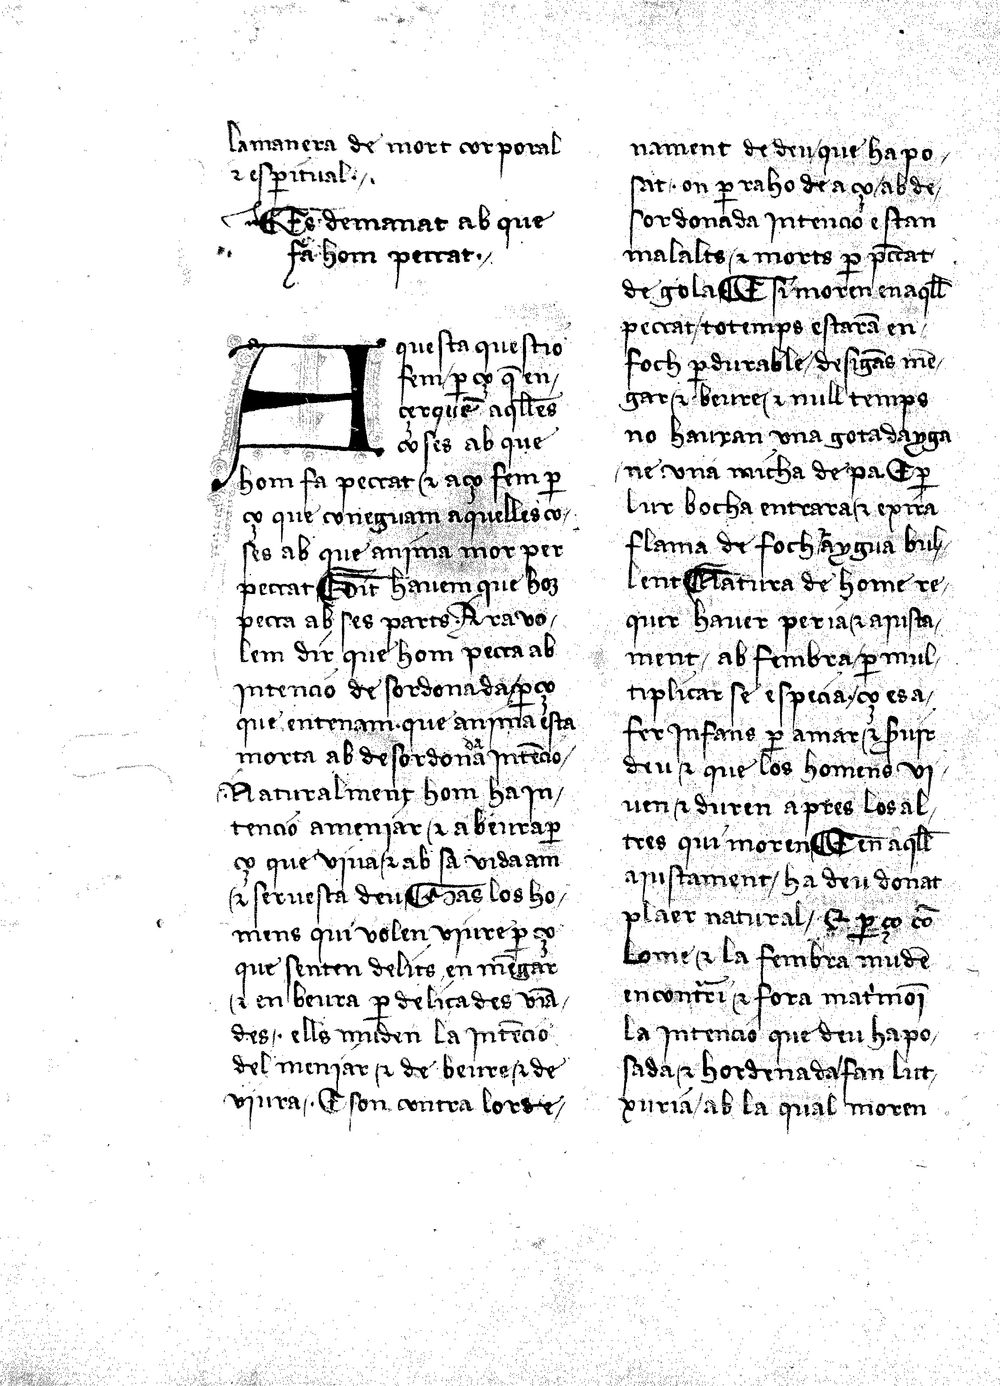 la manera de mort corporal
⁊ esp̅itual·/.
¶ Es demanat ab que
fa hom peccat·/.
A questa questio
fem/ p̲ ço q̅ en/
cerquē aq̅lles
coses ab que
hom fa peccat /⁊ aço fem p̲
ço que coneguam aquelles co/
ses ab que anima mor per
peccat ¶ Dit havem que hom
pecca ab ses parts· Ara vo/
lem dir que hom pecca ab
intencio de sordonada/ p̲ ço
que entenam· que anima esta
morta ab desordonada intēcio/
Naturalment hom ha in/
tencio a meniar /⁊ a beura p̲
ço que viua /⁊ ab sa vida am
/⁊ seruesta deu ¶ Mas los ho/
mens qui volen viure p̲ ço
que senten delits en mēgar
/⁊ en beura p̲ delicades viā/
des·/. ells muden la intēcio
del meniar /⁊ de beure /⁊ de
viura/· E son contra lorde/
nament de deu/ que ha po/
sat· on p̲ raho de aço/ ab de/
sordonada intencio estan
malalts /⁊ morts p̲ pc̅cat
de gola ¶ E si moren en aq̅ll
peccat/ totemps estarā en/
foch p̲durable/ desigās mē/
gar /⁊ beure /⁊ null temps
no hauran vna gota dayga
ne vna micha de pa E p̲
lur bocha entrara /⁊ exira
flama de foch/ aygua bul/
lent ¶ Natura de home re/
quer hauer paria /⁊ aiusta/
ment/ ab fembra/ p̲ mul/
tiplicar se especia/· ço es a/
fer infans p̲ amar /⁊ s̅uir
deu /⁊ que los homens vi/
uen /⁊ duren apres los al/
tres qui moren ¶ E en aq̅ll
aiustament/ ha deu donat
plaer natural/ E p̲ ço cō
lome /⁊ la fembra mudē
encontrari /⁊ fora mat'moni
la intencio que deu ha po/
sada /⁊ hordenada/ fan luc/
xuria/ ab la qual moren